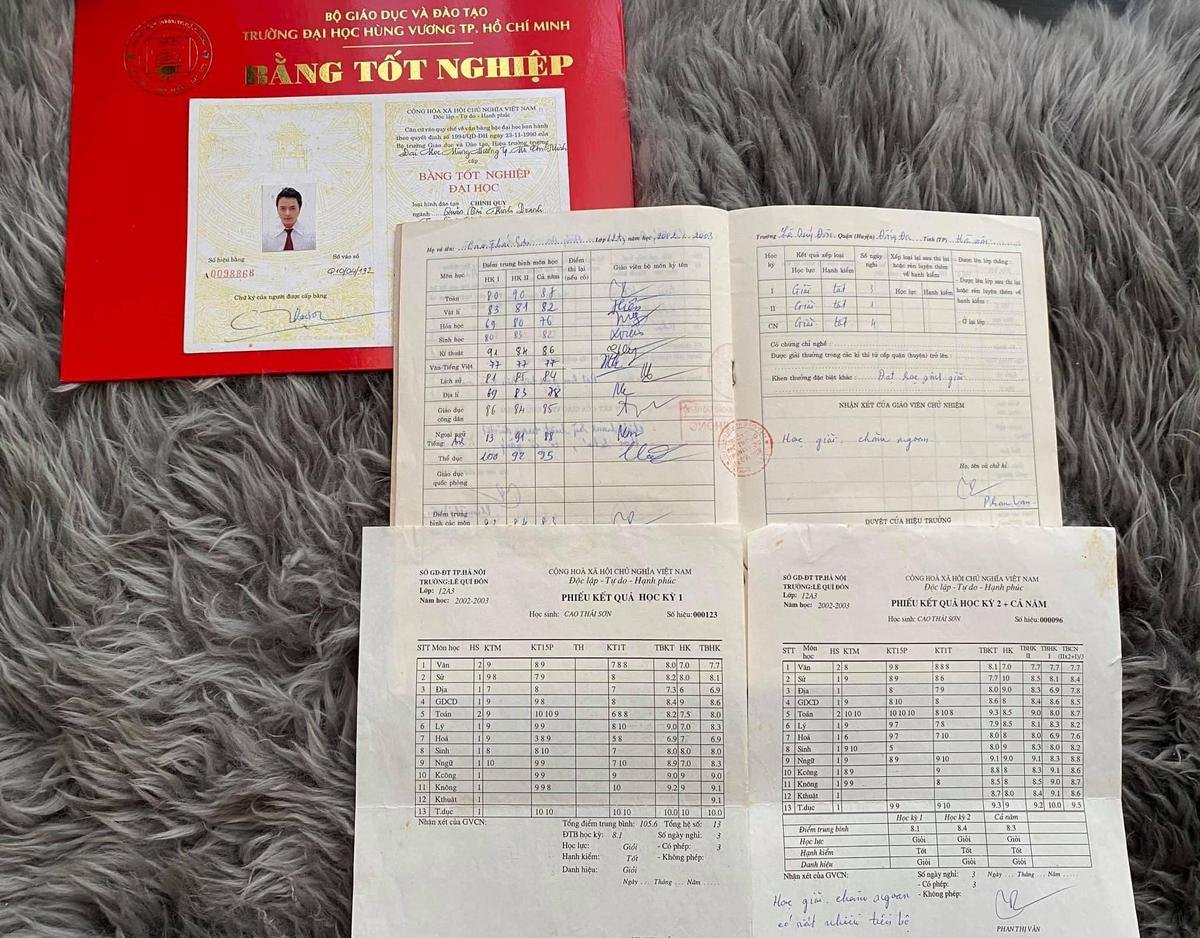 BỘ GIÁO DỤC VÀ ĐÀO TẠO
TRƯỜNG ĐẠI HỌC HÙNG VƯƠNG TP. HỒ CHÍ MINH
BẰNG TỐT NGHIỆP
CỘNG HÒA XÃ HỘI CHỦ NGHĨA VIỆT NAM
Độc lập - Tự do - Hạnh phúc
Căn cứ vào quy chế về văn bằng bậc đại học ban hành
theo quyết định số 1994/QD-ĐH ngày 23-11-1990 của
Bộ trưởng Giáo dục và Đào tạo, Hiệu trưởng trường
Đại Học Hùng Vương Tp. Hồ Chí Minh
cấp
BẰNG TỐT NGHIỆP
ĐẠI HỌC
loại hình đào tạo CHÍNH QUY
ngành Quản Trị Kinh Doanh
Số hiệu bằng Số vào sổ
A0098868 Q10/04/192
Chữ ký của người được cấp bằng
Họ và tên: Cao Thái Sơn Lớp 12A3 năm học 2002 - 2003
Môn học Điểm trung bình môn học Điểm thi lại (nếu có) Giáo viên bộ môn ký tên
HK I HK II Cả năm
Toán 80 90 87
Vật lí 83 81 82
Hóa học 69 80 76
Sinh học 80 83 82
Kĩ thuật 91 84 86
Văn-Tiếng Việt 77 77 77
Lịch sử 81 85 84
Địa lí 69 83 78
Giáo dục công dân 86 84 85
Ngoại ngữ Tiếng: 91 88
Thể dục 100 92 95
Giáo dục quốc phòng
Điểm trung bình các môn
Trường Lê Quý Đôn Quận (Huyện) Đống Đa Tỉnh (TP) Hà Nội
Học kỳ Kết quả xếp loại Số ngày nghỉ Xếp loại lại sau thi lại hoặc rèn luyện thêm về hạnh kiểm - Được lên lớp thẳng:
Học lực Hạnh kiểm Học lực Hạnh kiểm
I Giỏi tốt 3
II Giỏi tốt 1
CN Giỏi tốt 4
- Được lên lớp sau thi lại hoặc rèn luyện thêm về hạnh kiểm:
- Ở lại lớp:
Có chứng chỉ nghề:
Được giải thưởng trong các kì thi từ cấp quận (huyện) trở lên:
Khen thưởng đặc biệt khác: Đạt học sinh giỏi
NHẬN XÉT CỦA GIÁO VIÊN CHỦ NHIỆM
Học giỏi, chăm ngoan
Họ, tên và chữ kí
Phan Vân
DUYỆT CỦA HIỆU TRƯỞNG
SỞ GD-ĐT TP.HÀ NỘI
TRƯỜNG:LÊ QUÍ ĐÔN
Lớp: 12A3
Năm học: 2002-2003
CỘNG HOÀ XÃ HỘI CHỦ NGHĨA VIỆT NAM
Độc lập - Tự do - Hạnh phúc
PHIẾU KẾT QUẢ HỌC KỲ 1
Học sinh: CAO THÁI SƠN Số hiệu:000123
STT Môn học HS KTM KT15P TH KT1T TBKT HK TBHK
1 Văn 2 9 8 9 7 8 8 8.0 7.0 7.7
2 Sử 1 9 8 7 9 8 8.2 8.0 8.1
3 Địa 1 7 8 7 7.3 6 6.9
4 GDCD 1 9 9 8 8 8.4 9 8.6
5 Toán 2 9 10 10 9 6 8 8 8.2 7.5 8.0
6 Lý 1 9 9 8 10 9.0 7.0 8.3
7 Hoá 1 9 3 8 9 5 8 6.9 7 6.9
8 Sinh 1 8 8 10 7 8.0 8.0 8.0
9 Ngữ 1 10 9 9 7 10 8.9 7.0 8.3
10 Kcông 1 9 9 9 9.0 9 9.0
11 Knông 1 9 9 8 10 9.2 9 9.1
12 Kthuật 1 9.1
13 T.dục 1 10 10 10 10 10.0 10 10.0
Nhận xét của GVCN: Tổng điểm trung bình: 105.6 Tổng hệ số: 13
ĐTB học kỳ: 8.1 Số ngày nghỉ: 3
Học lực: Giỏi - Có phép: 3
Hạnh kiểm: Tốt - Không phép:
Danh hiệu: Giỏi
Ngày ... Tháng ... Năm .....
SỞ GD-ĐT TP.HÀ NỘI
TRƯỜNG:LÊ QUÍ ĐÔN
Lớp: 12A3
Năm học: 2002-2003
CỘNG HOÀ XÃ HỘI CHỦ NGHĨA VIỆT NAM
Độc lập - Tự do - Hạnh phúc
PHIẾU KẾT QUẢ HỌC KỲ 2 + CẢ NĂM
Học sinh: CAO THÁI SƠN Số hiệu:000096
STT Môn học HS KTM KT15P KT1T TBKT HK TBHK II TBHK I TBCN (IIx2+I)/3
1 Văn 2 8 9 8 8 8 8 8.1 7.0 7.7 7.7 7.7
2 Sử 1 9 8 9 8 6 7.7 10 8.5 8.1 8.4
3 Địa 1 8 7 9 8.0 9.0 8.3 6.9 7.8
4 GDCD 1 9 8 10 8 8.6 8 8.4 8.6 8.5
5 Toán 2 10 10 10 10 10 8 10 8 9.3 8.5 9.0 8.0 8.7
6 Lý 1 9 9 7 7 8 7.9 8.5 8.1 8.3 8.2
7 Hoá 1 6 9 7 7 10 8.0 8 8.0 6.9 7.6
8 Sinh 1 9 10 5 8.0 9 8.3 8.0 8.2
9 Ngữ 1 9 8 9 9 10 9.1 9.0 9.1 8.3 8.8
10 Kcông 1 8 9 9 8.8 8 8.3 9.1 8.6
11 Knông 1 9 9 8 8.5 8 8.5 9.0 8.7
12 Kthuật 1 8.7 8.0 8.4 9.1 8.6
13 T.dục 1 9 9 9 10 9.3 9 9.2 10.0 9.5
Học kỳ 1 Học kỳ 2 Cả năm
Điểm trung bình 8.1 8.4 8.3
Học lực Giỏi Giỏi Giỏi
Hạnh kiểm Tốt Tốt Tốt
Danh hiệu Giỏi Giỏi Giỏi
Nhận xét của GVCN: Số ngày nghỉ: 3
- Có phép: 3
- Không phép:
Ngày ... Tháng ... Năm .....
Học giỏi, chăm ngoan
có rất nhiều tiến bộ
PHAN THỊ VÂN